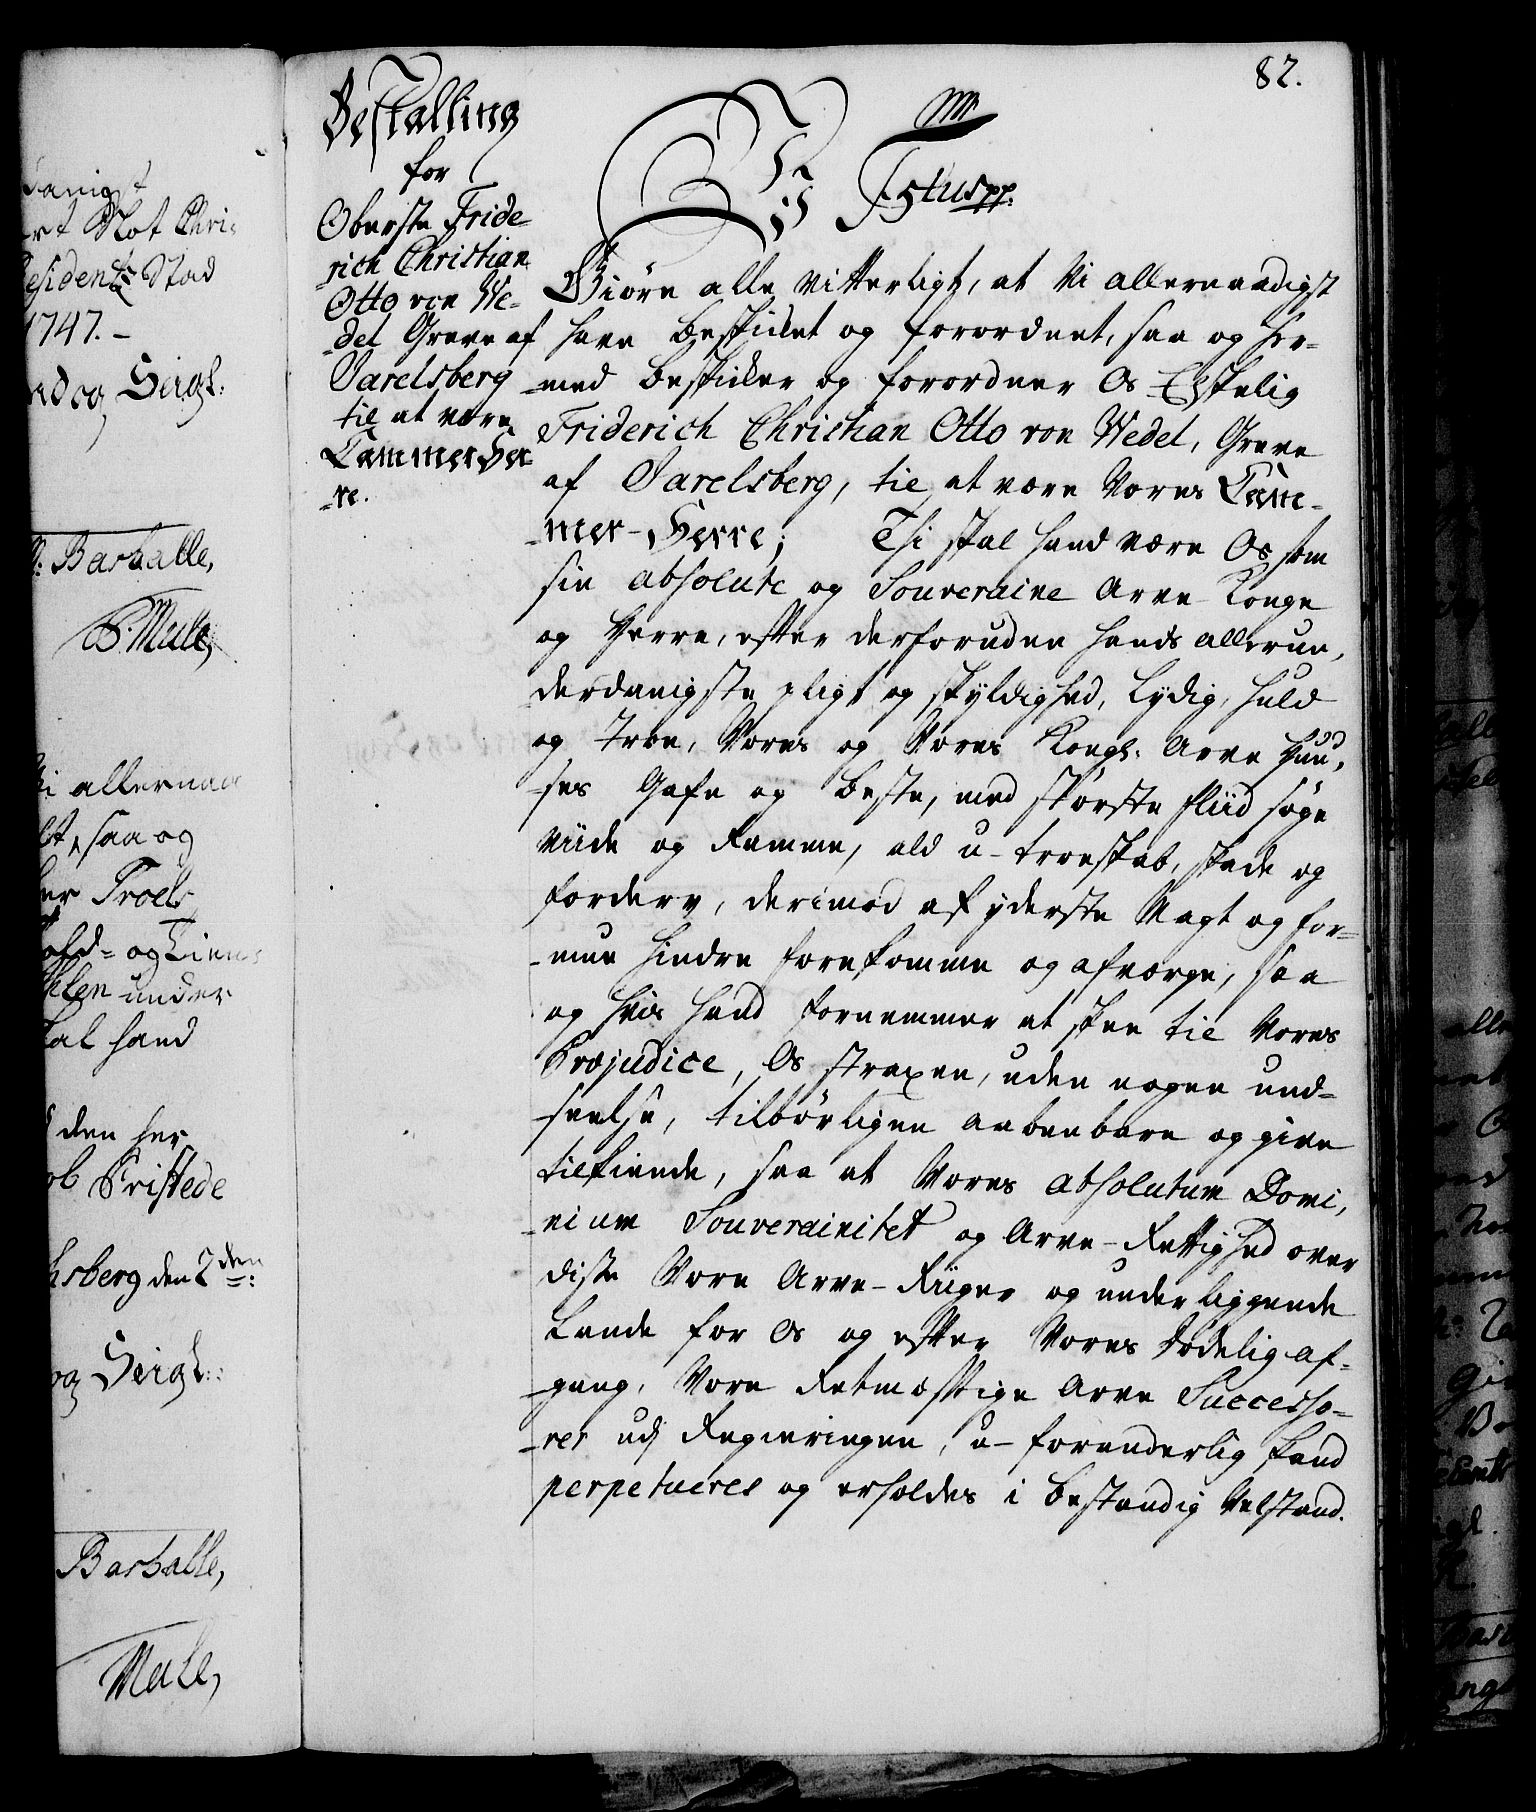 82.
Bestalling
for
Oberste Fride-
-rich Christian
Otto von We-
-del Greve af
Jarelsberg
til at være
CammerHer
-re.
F 5tus pp.
Giøre alle vitterligt, at Vi allernaadigst
have beskicket og forordnet, saa og her-
-med beskicker og forordner Os Elskelig
Friderich Christian Otto von Wedel, Greve
af Jarelsberg, til at være Vores Cam-
-mer-Herre; Thi skal hand være Os som
sin absolute og Souveraine Arve Konge
og Herre, efter derforuden hands allerun,
derdanigste pligt og skyldighed, Lydig, huld
og Troe, Vores og Vores Kongl: Arve Huu,
-ses Gafn og beste, med største fliid søge
viide og ramme, ald u-troeskab, skade og
forderv, derimod af yderste Magt og for-
-mue hindre forekomme og afværge, saa
og hvis hand fornemmer at skee til Vores
Præjudice, Os straxen, uden nogen und-
-seelse, tilbørligen aabenbare og give
tilkiende, saa at Vores absolutum Domi,
-nium Souverainitet og Arve-Rettighed over
disse Vore Arve-Riiger og underliggende
Lande for Os og efter Vores dødelig af-
-gang, Vore Retmæssige Arve Successo-
-rer udj Regieringen, u-foranderlig kand
perpetueres og erholdes i bestandig Velstand.
danigst
rt Not Chri:
esidentz Stad
1747. -
nd og Seigl:
: Barhalle,
P. Mule,
i allernaa
lt, saa og
er Troels
old- og Liens
hlen under
kal hand
den her
ob Fristede
hsberg den 2den:
og Seigl::
Barhalle,
Mule,